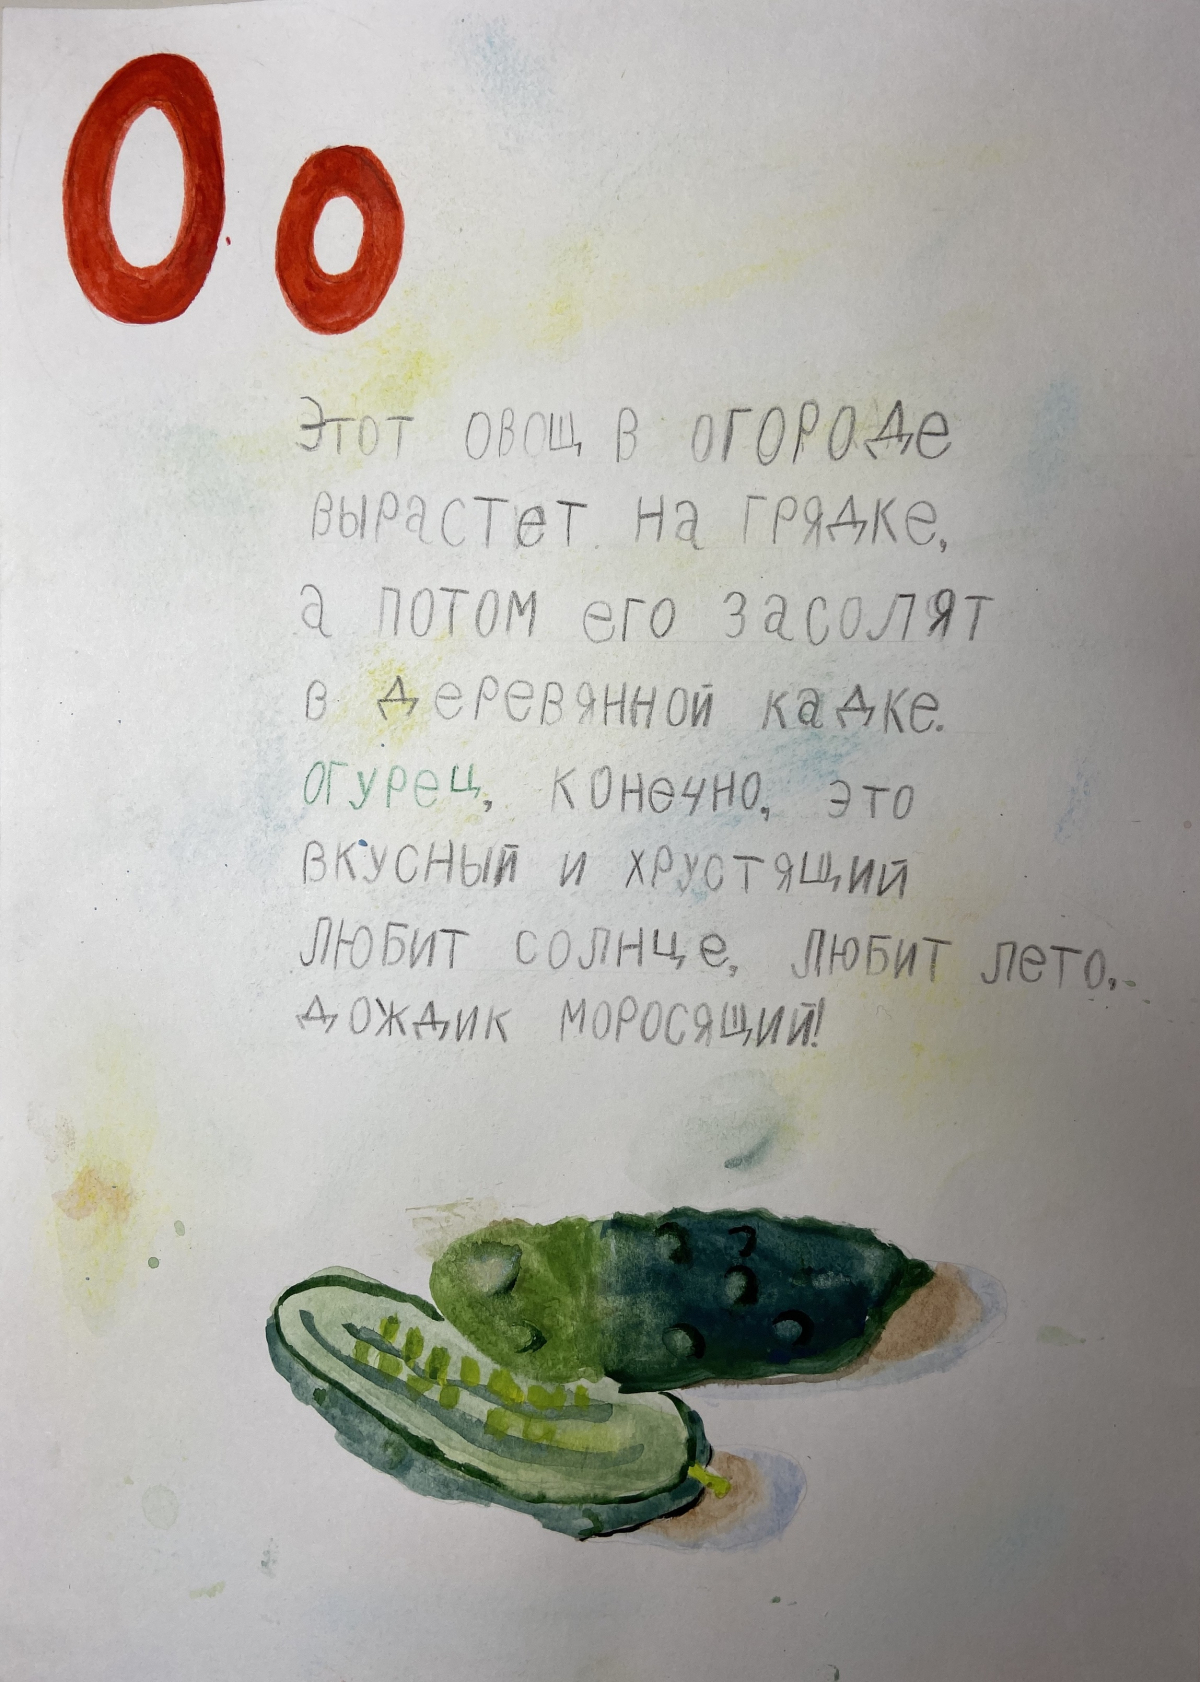 Оо
Этот овощ в огороде
вырастет на грядке,
а потом его засолят
в деревянной кадке.
огурец, конечно, это
вкусный и хрустящий
любит солнце, любит лето,
дождик моросящий!